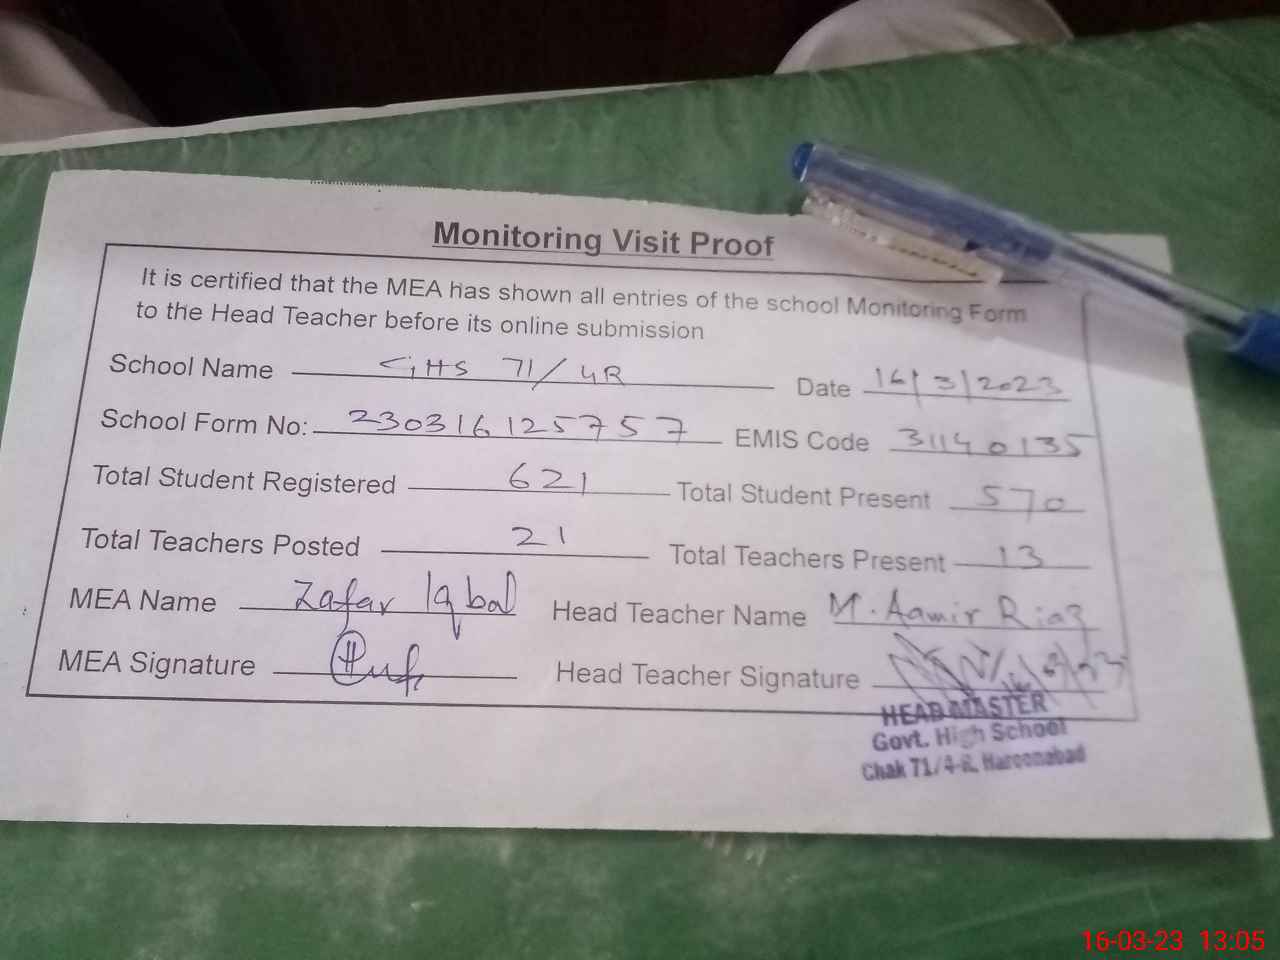 Monitoring Visit Proof
It is certified that the MEA has shown all entries of the school Monitoring Form
to the Head Teacher before its online submission
School Name GHS 71/4R Date 16/3/2023
School Form No: 230316125757 EMIS Code 31140135
Total Student Registered 621 Total Student Present 570
Total Teachers Posted 21 Total Teachers Present 13
MEA Name Zafar Iqbal Head Teacher Name M. Aamir Riaz
MEA Signature Head Teacher Signature
HEAD MASTER
Govt. High School
Chak 71/4-R, Haroonabad
16-03-23 13:05